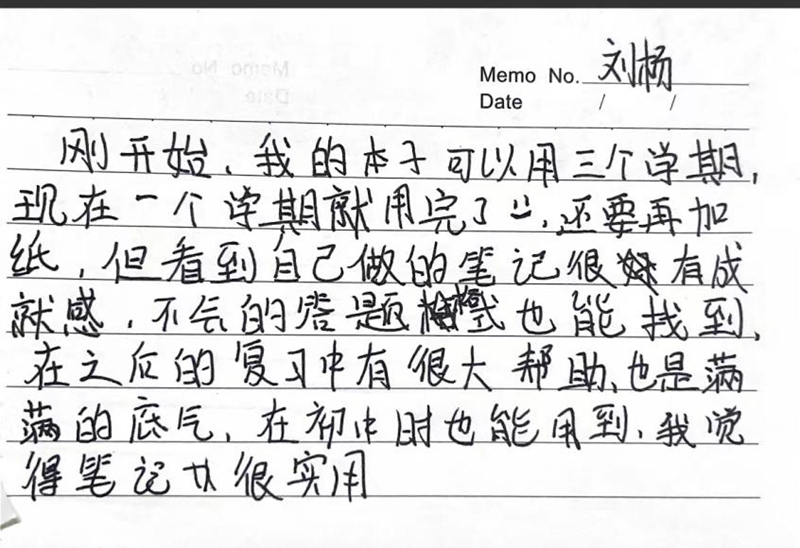 Memo No. 刘杨
Date / /
刚开始，我的本子可以用三个学期，
现在一个学期就用完了，还要再加
纸，但看到自己做的笔记很有成
就感，不会的答题模式也能找到，
在之后的复习中有很大帮助、也是满
满的底气，在初中时也能用到，我觉
得笔记很实用